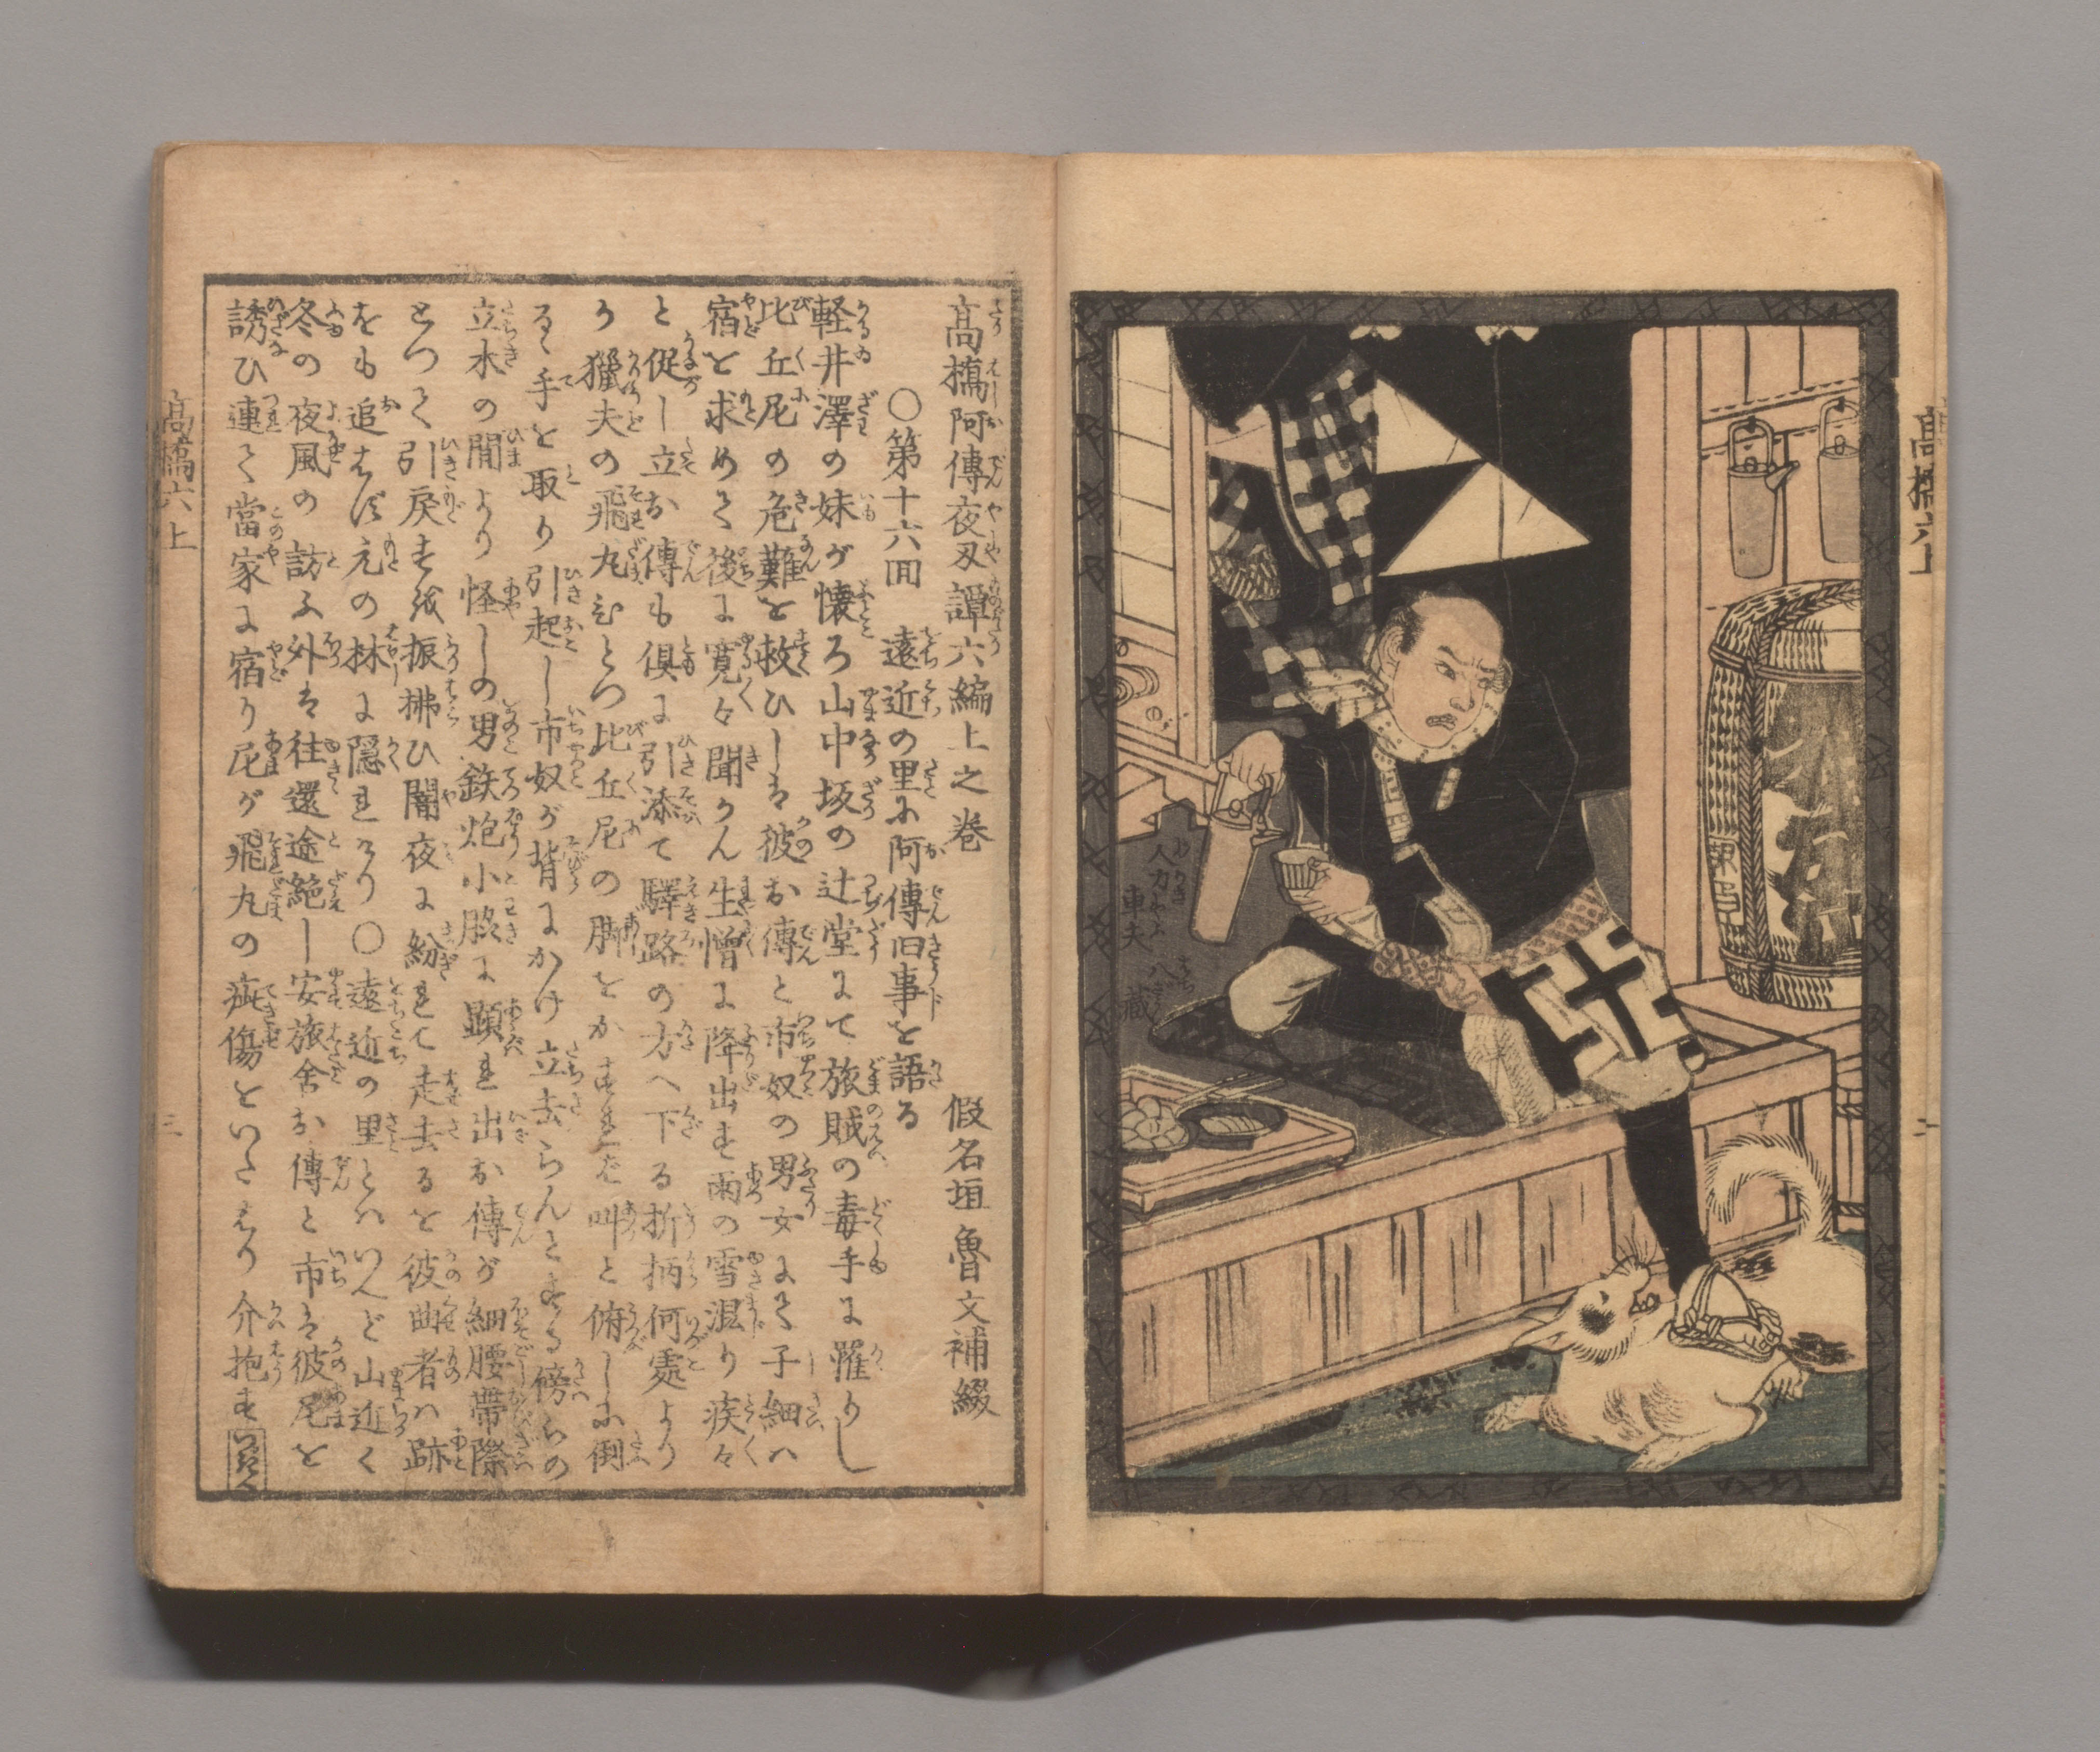 高橋六上
人力やぶ
車夫 八藏
高橋阿傳夜刄譚六編上之巻 假名垣魯文補綴
〇第十六囬 遠近の里に阿傳旧事を語る
軽井澤の妹が懐ろ山中坂の辻堂にて旅賊の毒手に罹りし
比丘尼の危難を救ひしは彼お傳と市奴の男女にて子細ハ
宿を求めて後に寛々聞かん生憎に降出す雨の雪混り疾々
と促し立お傳も倶に引添て驛路の方へ下る折柄何處より
か獵夫の飛丸ひとつ比丘尼の脚をかすれバ叫と俯しに倒
るゝ手を取り引起し市奴が背にかけ立去らんとする傍らの
立木の間より怪しの男鉄炮小脇に顕れ出お傳が細腰帯際
とつて引戻すを振拂ひ闇夜に紛れて走去るを彼曲者ハ跡
をも追はず元の林に隠れけり〇遠近の里とハいへど山近く
冬の夜風の訪ふ外は往還途絶し安旅舎お傳と市は彼尼を
誘ひ連て當家に宿り尼が飛丸の疵傷をいたはり介抱す
高橋六上 三